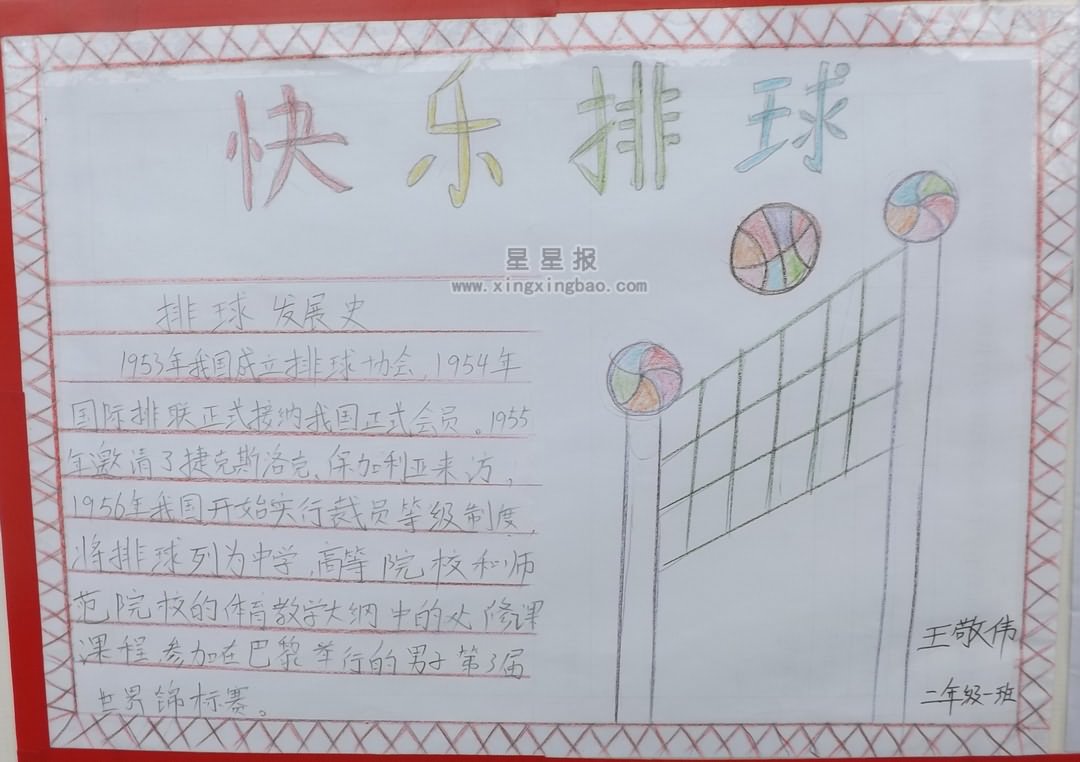 快乐排球
星星报
www.xingxingbao.com
排球发展史
1953年我国成立排球协会,1954年
国际排联正式接纳我国正式会员。1955
年邀请了捷克斯洛克、保加利亚来访,
1956年我国开始实行裁员等级制度,
将排球列为中学,高等院校和师
范院校的体育教学大纲中的必修课
课程参加在巴黎举行的男子第3届
世界锦标赛。
王敬伟
二年级一班